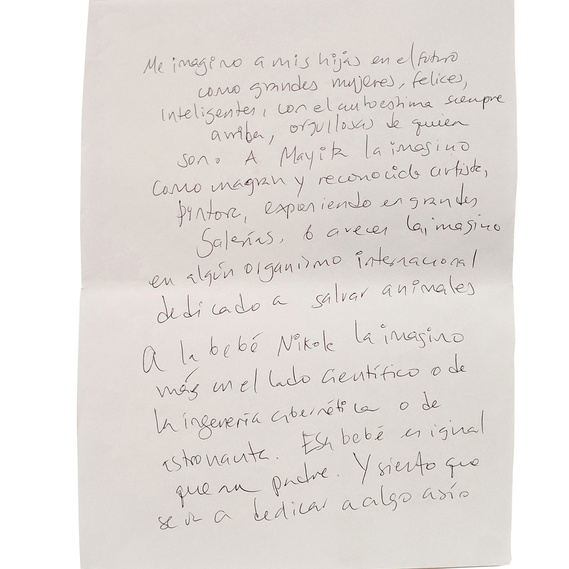 Me imagino a mis hijas en el futuro
como grandes mujeres, felices,
inteligentes, con el autoestima siempre
arriba, orgullosas de quien
son. A Mayita la imagino
como una gran y reconocida artista,
pintora, exponiendo en grandes
Galerías, ó aveces la imagino
en algún organismo internacional
dedicado a salvar animales
A la bebé Nikole la imagino
más en el lado científico o de
la ingenería cibernética o de
astronauta. Esa bebé es igual
que su padre. Y siento que
se va a dedicar a algo así.